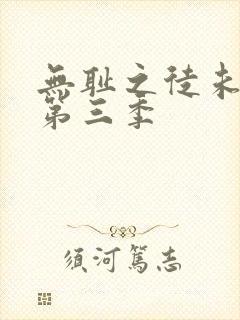 無耻之徒未
第三季
須河篤志